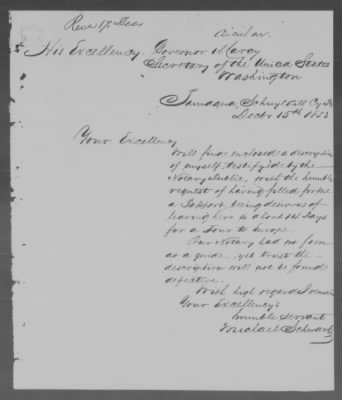 Recd 17 Decr
Circular.
His Excellency. Governor Marcy
Secretary of the United States
Washington
Tamaqua, Schuylkill Cy Pa
Decbr 15th 1853
Your Excellency
Will find enclosed a description
of myself, testifyide by the
Notary Public, with the humble
request of having filled for me
a Passport, being desirous of
leaving here in about 14 Days
for a Tour to Europe.
Our Notary had no form
as a guide, yet trust the
description will not be found
defective.
With high regards I remain
Your Excellency's
humble servant
Michael Schwartz